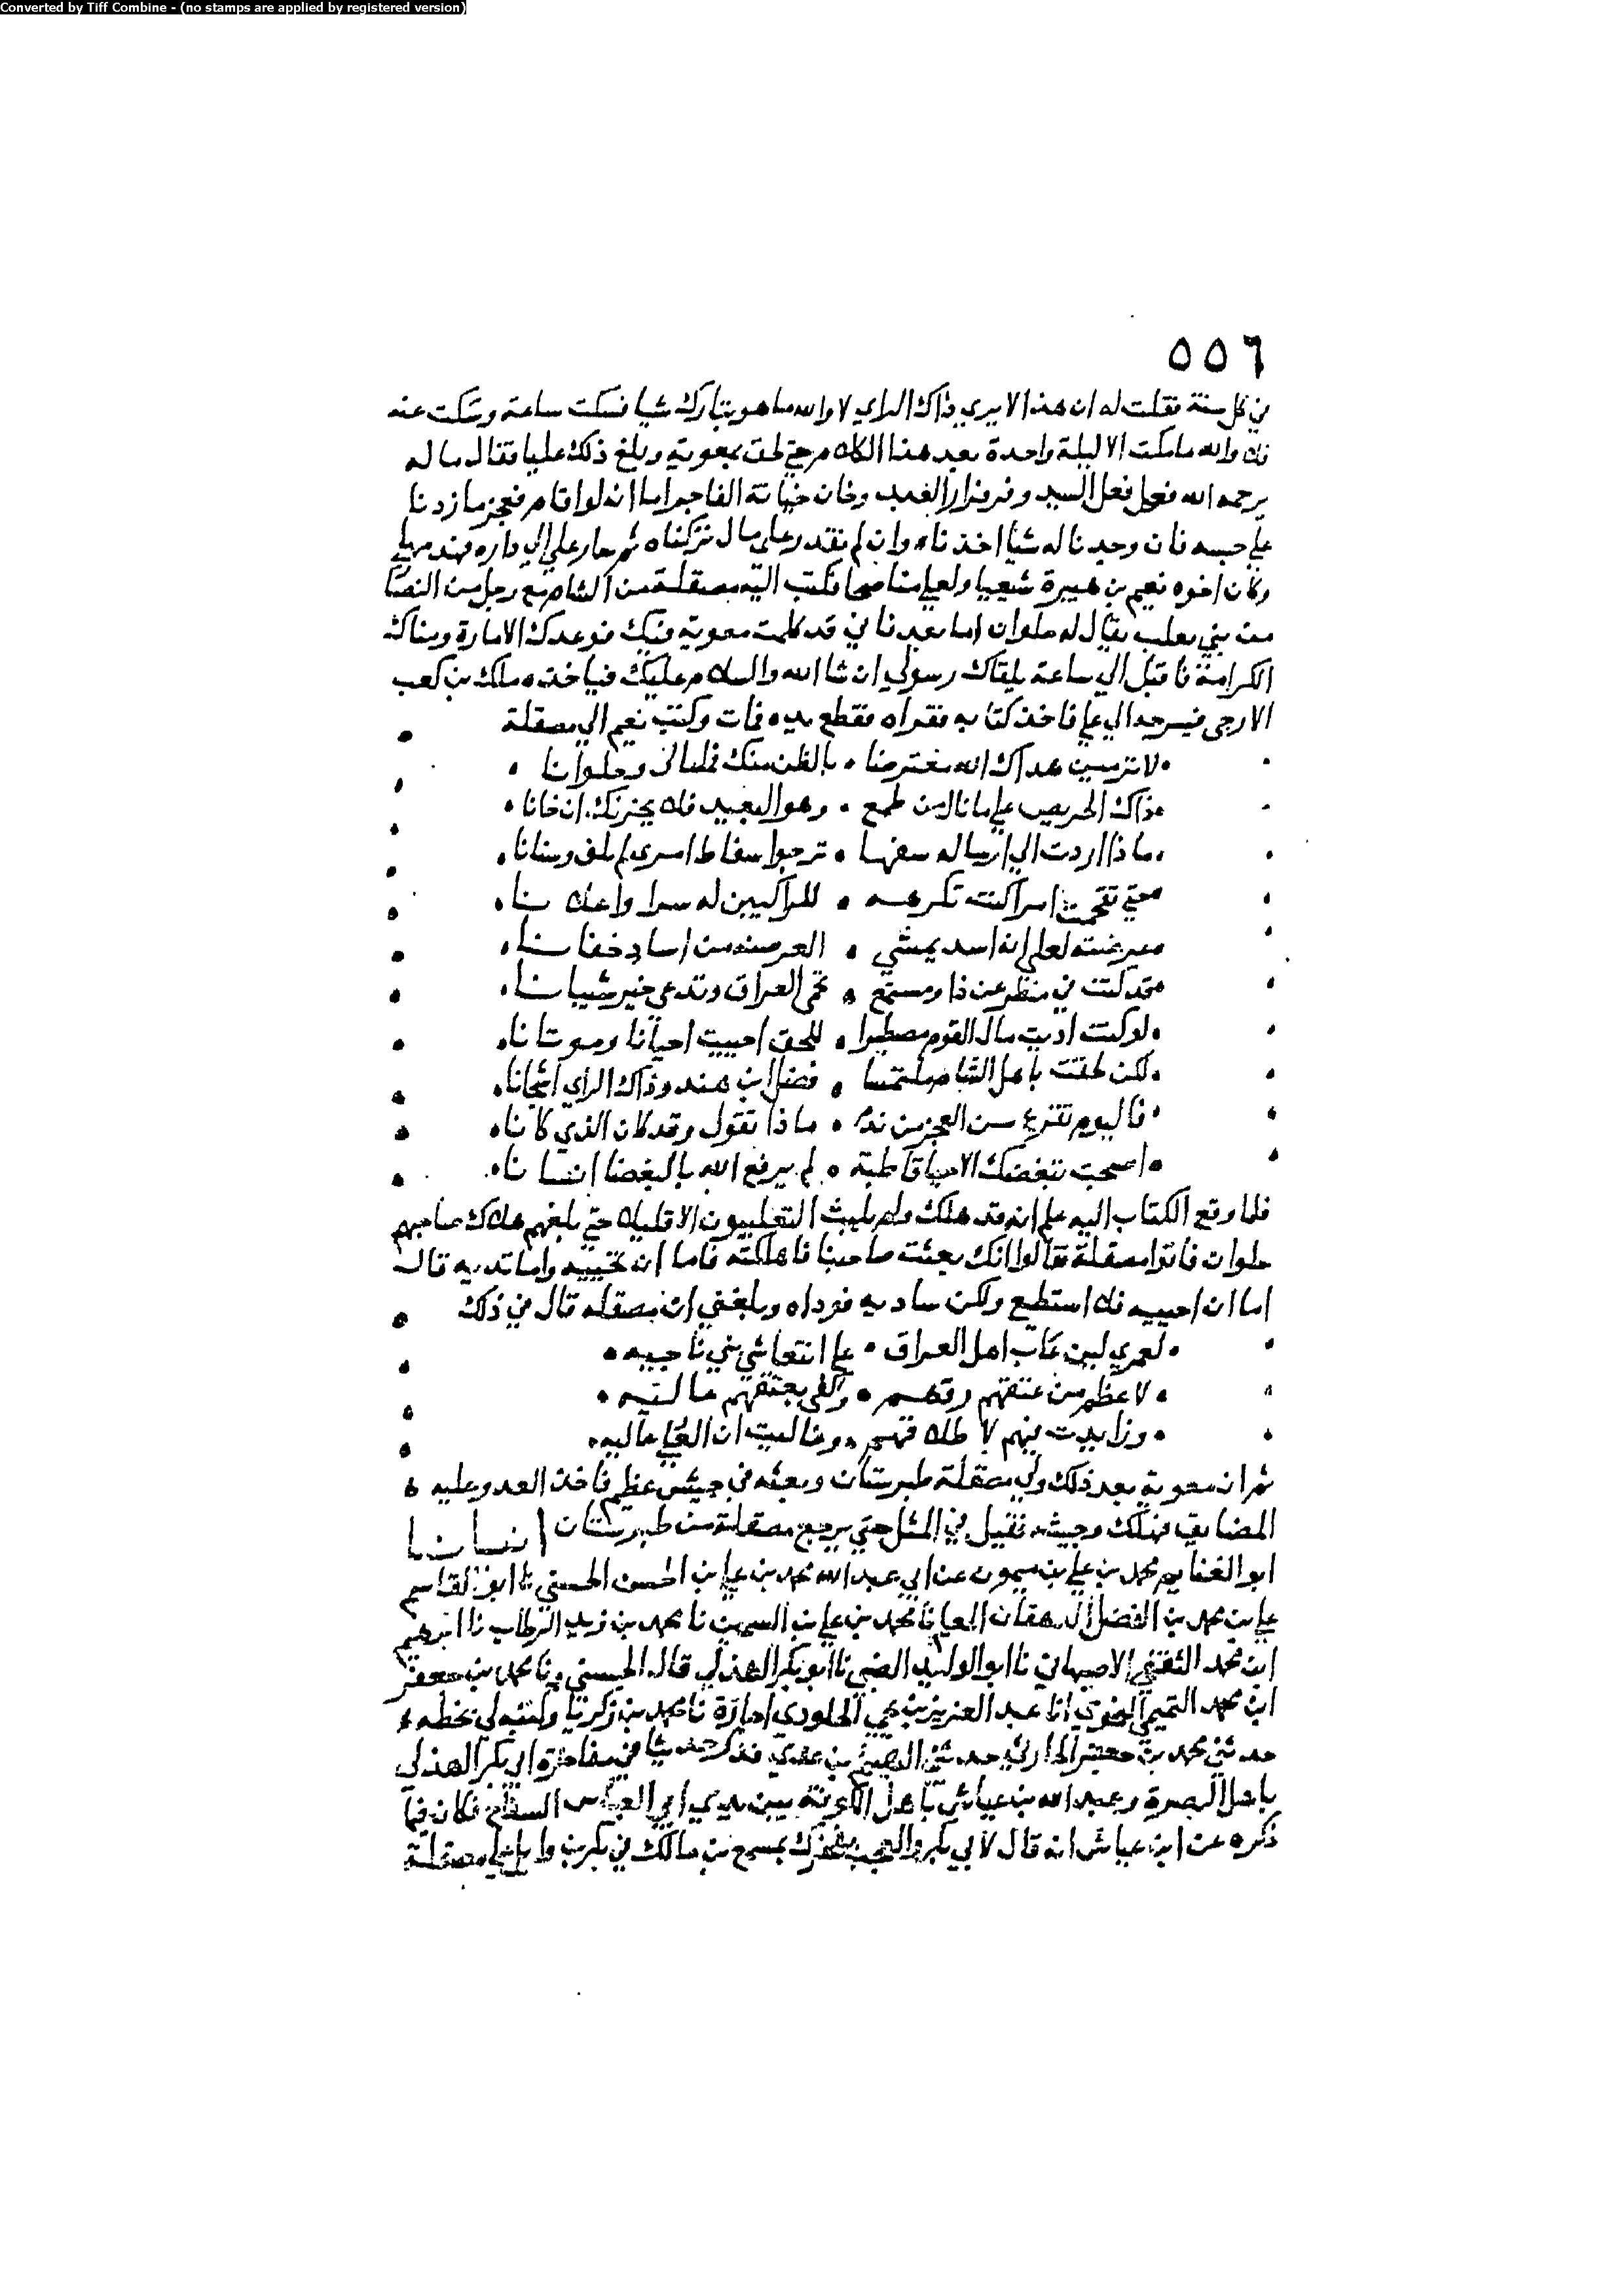 Converted by Tiff Combine - (no stamps are applied by registered version)
٥٥٦
في كل سنة فقلت له ان هذا لا يري ذاك الراي لا والله ما هو بتارك شيا فسكت ساعة وسكت عنه
فلا والله ما مكث الا ليلة واحدة بعد هذا الكلام حتي لحق بمعوية وبلغ ذلك عليا فقال ما له
يرحمه الله فعل فعل السيد وفر فرار العبد وخان خيانة الفاجر اما انه لو اقام فعجز ما زدنا
علي حبسه فان وجدنا له شيا اخذناه وان لم نقدر علي مال تركناه ثم صار علي الي داره فهدمها
وكان اخوه نعيم بن هبيرة شيعيا ولعلي مناصحا فكتب اليه مصقلة من الشام مع رجل من النصا
من بني تغلب يقال له حلوان اما بعد فاني قد كلمت معوية فيك فوعدك الامارة ومناك
الكرامة فاقبل الي ساعة يلقاك رسولي ان شا الله والسلام عليك فياخذه ملك بن كعب
الارحبي فيسرحه الي علي فاخذ كتابه فقراه فقطع يده فمات وكتب نعيم الي مصقلة
لا ترمين هداك الله معترضا بالظن منك فما بالي وحلوانا
ذاك الحريص علي ما نال من طمع وهو البعيد فلا يحزنك ان خانا
ماذا اردت الي ارساله سفها ترجوا سقاط امري لم يلف وسنانا
حتي تقحمت امرا كنت تكرهه للراكبين له سرا واعلانا
عرضته لعلي انه اسد يمشي العرضنه من اساد خفانا
قد كنت في منظر عن ذا ومستمع تحمي العراق وتدعي خير شيبانا
لو كنت اديت مال القوم مصطبرا للحق احييت احيانا وموتانا
لكن لحقت باهل الشام ملتمسا فضل ابن هند وذاك الراي اشجانا
فاليوم تقرع سن العجز من ندم ماذا تقول وقد كان الذي كانا
اصبحت تبغضك الاحيا قاطبة لم يرفع الله بالبغضا انسانا
فلما وقع الكتاب اليه علم انه قد هلك ولم يلبث التغلبيون الا قليلا حتي بلغهم هلاك صاحبهم
حلوان فاتوا مصقلة فقالوا انك بعثت صاحبنا فاهلكته فاما ان تحييه واما تديه قال
اما ان احييه فلا استطيع ولكن ساديه فوداه وبلغني ان مصقله قال في ذلك
لعمري لين عاب اهل العراق علي انتعاشي بني ناجيه
لاعظم من عتقهم رقهم وكفي بعتقهم عاليه
وزايدت فيهم لاطلاقهم وغاليت ان العلي غاليه
ثم ان معوية بعد ذلك ولي مصقلة طبرستان وبعثه في جيش عظيم فاخذ العدو عليه
المضايق فهلك وجيشه فقيل في المثل حتي يرجع مصقلة من طبرستان انبانا
ابو الغنايم محمد بن علي بن ميمون عن ابي عبد الله محمد بن علي بن الحسن الحسني نا ابو القاسم
علي بن محمد بن الفضل الدهقان نا محمد بن علي بن السمين نا محمد بن زيد الرطاب نا ابرهيم
ابن محمد الثقفي الاصبهاني نا ابو الوليد الضبي نا ابو بكر الهذلي قال الحسني ونا محمد بن جعفر
ابن محمد التميمي النحوي انا عبد العزيز بن يحيي الجلودي اجازة نا محمد بن زكريا وكتبه لي بخطه
حدثني محمد بن جعفر حدثني الهيثم بن عدي فذكر حديثا في مفاخرة ابي بكر الهذلي
باهل البصرة وعبد الله بن عياش باهل الكوفة بين يدي ابي العباس السفاح فكان فيما
ذكره عن ابن عياش انه قال لابي بكر والعجب بمسمع بن مالك في بكر بن وايل مصقلة